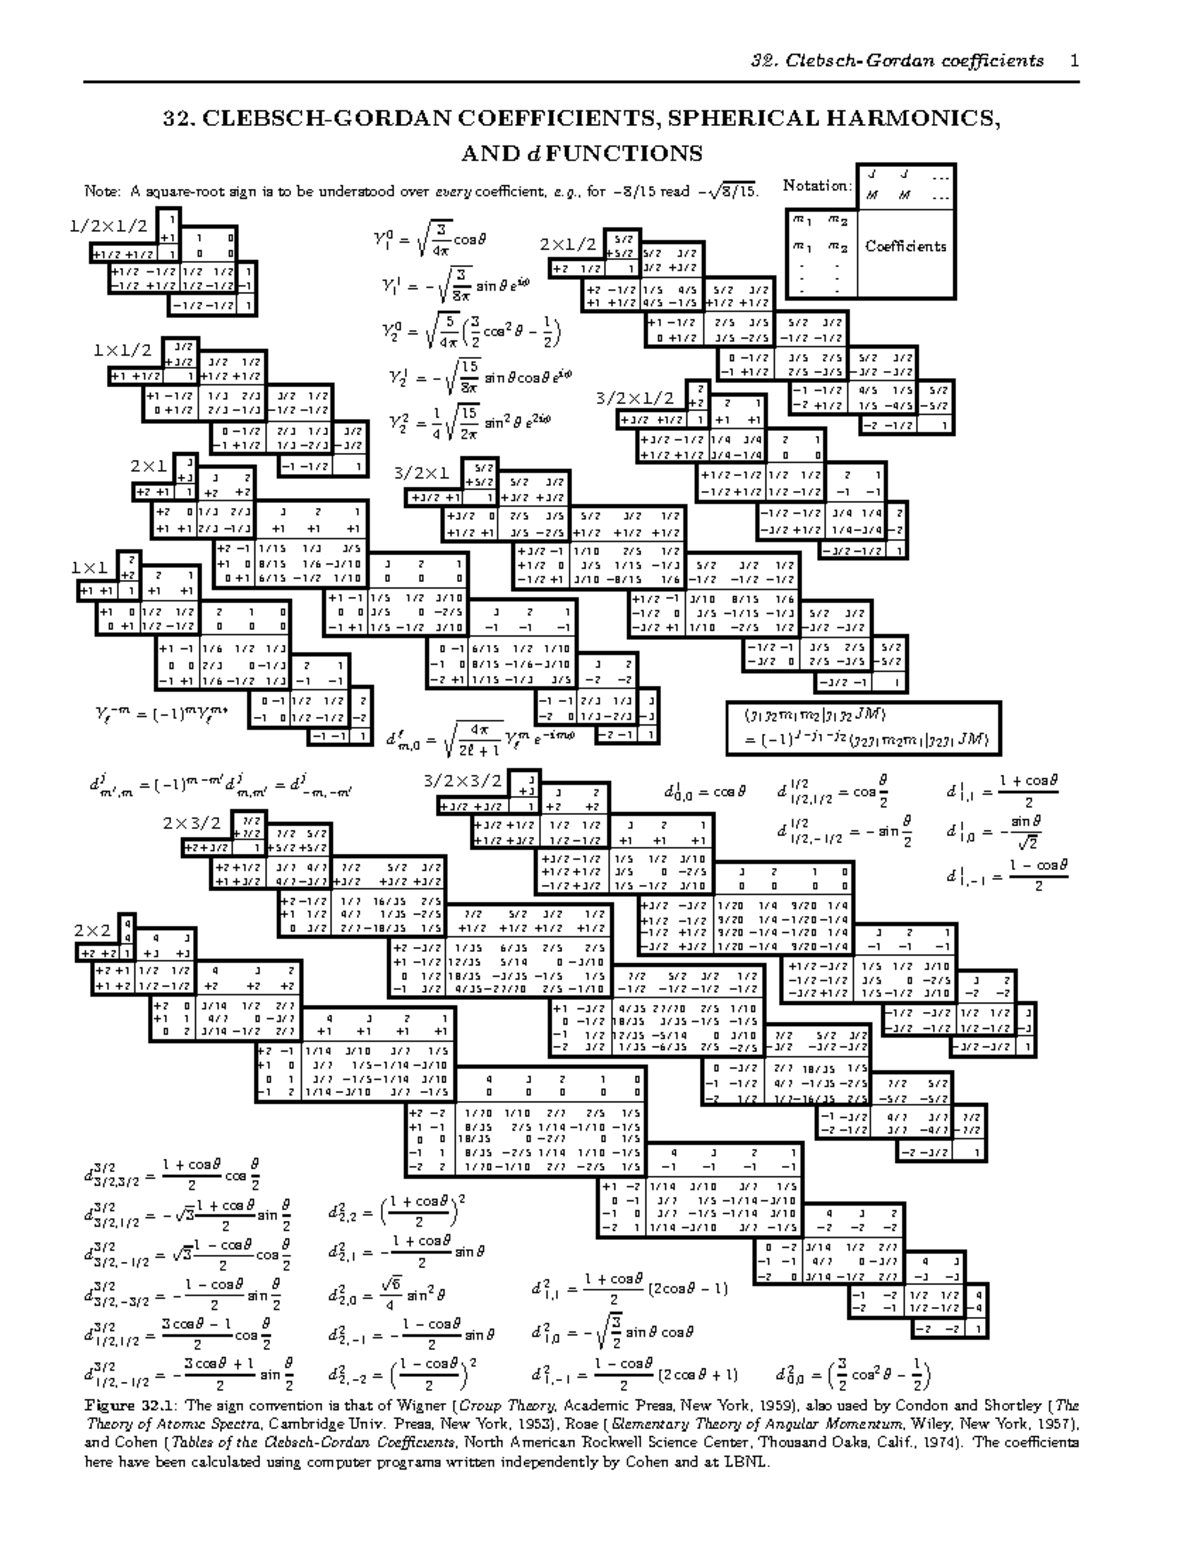 32. Clebsch-Gordan coefficients 1
32. CLEBSCH-GORDAN COEFFICIENTS, SPHERICAL HARMONICS,
AND d FUNCTIONS
Note: A square-root sign is to be understood over every coefficient, e.g., for −8/15 read −√8/15.
Notation:
J J ...
M M ...
m₁ m₂
m₁ m₂ Coefficients
1/2×1/2
1
+1 1 0
+1/2 +1/2 1 0 0
+1/2 −1/2 1/2 1/2 1
−1/2 +1/2 1/2 −1/2 −1
−1/2 −1/2 1
Y₁⁰ = √(3/4π) cos θ
Y₁¹ = −√(3/8π) sin θ e^{iφ}
Y₂⁰ = √(5/4π) (3/2 cos² θ − 1/2)
Y₂¹ = −√(15/8π) sin θ cos θ e^{iφ}
Y₂² = 1/4 √(15/2π) sin² θ e^{2iφ}
2×1/2
5/2
+5/2 5/2 3/2
+2 1/2 1 3/2 +3/2
+2 −1/2 1/5 4/5 5/2 3/2
+1 +1/2 4/5 −1/5 +1/2 +1/2
+1 −1/2 2/5 3/5 5/2 3/2
0 +1/2 3/5 −2/5 −1/2 −1/2
0 −1/2 3/5 2/5 5/2 3/2
−1 +1/2 2/5 −3/5 −3/2 −3/2
−1 −1/2 4/5 1/5 5/2
−2 +1/2 1/5 −4/5 −5/2
−2 −1/2 1
1×1/2
3/2
+3/2 3/2 1/2
+1 +1/2 1 +1/2 +1/2
+1 −1/2 1/3 2/3 3/2 1/2
0 +1/2 2/3 −1/3 −1/2 −1/2
0 −1/2 2/3 1/3 3/2
−1 +1/2 1/3 −2/3 −3/2
−1 −1/2 1
3/2×1/2
2
+2 2 1
+3/2 +1/2 1 +1 +1
+3/2 −1/2 1/4 3/4 2 1
+1/2 +1/2 3/4 −1/4 0 0
+1/2 −1/2 1/2 1/2 2 1
−1/2 +1/2 1/2 −1/2 −1 −1
−1/2 −1/2 3/4 1/4 2
−3/2 +1/2 1/4 −3/4 −2
−3/2 −1/2 1
2×1
3
+3 3 2
+2 +1 1 +2 +2
+2 0 1/3 2/3 3 2 1
+1 +1 2/3 −1/3 +1 +1 +1
+2 −1 1/15 1/3 3/5
+1 0 8/15 1/6 −3/10 3 2 1
0 +1 6/15 −1/2 1/10 0 0 0
+1 −1 1/5 1/2 3/10
0 0 3/5 0 −2/5 3 2 1
−1 +1 1/5 −1/2 3/10 −1 −1 −1
0 −1 6/15 1/2 1/10
−1 0 8/15 −1/6 −3/10 3 2
−2 +1 1/15 −1/3 3/5 −2 −2
−1 −1 2/3 1/3 3
−2 0 1/3 −2/3 −3
−2 −1 1
3/2×1
5/2
+5/2 5/2 3/2
+3/2 +1 1 +3/2 +3/2
+3/2 0 2/5 3/5 5/2 3/2 1/2
+1/2 +1 3/5 −2/5 +1/2 +1/2 +1/2
+3/2 −1 1/10 2/5 1/2
+1/2 0 3/5 1/15 −1/3 5/2 3/2 1/2
−1/2 +1 3/10 −8/15 1/6 −1/2 −1/2 −1/2
+1/2 −1 3/10 8/15 1/6
−1/2 0 3/5 −1/15 −1/3 5/2 3/2
−3/2 +1 1/10 −2/5 1/2 −3/2 −3/2
−1/2 −1 3/5 2/5 5/2
−3/2 0 2/5 −3/5 −5/2
−3/2 −1 1
1×1
2
+2 2 1
+1 +1 1 +1 +1
+1 0 1/2 1/2 2 1 0
0 +1 1/2 −1/2 0 0 0
+1 −1 1/6 1/2 1/3
0 0 2/3 0 −1/3 2 1
−1 +1 1/6 −1/2 1/3 −1 −1
0 −1 1/2 1/2 2
−1 0 1/2 −1/2 −2
−1 −1 1
Y_ℓ^{−m} = (−1)^m Y_ℓ^{m*}
d^ℓ_{m,0} = √(4π/(2ℓ + 1)) Y_ℓ^m e^{−imφ}
⟨j₁j₂m₁m₂|j₁j₂JM⟩
= (−1)^{J−j₁−j₂}⟨j₂j₁m₂m₁|j₂j₁JM⟩
d^j_{m′,m} = (−1)^{m−m′} d^j_{m,m′} = d^j_{−m,−m′}
3/2×3/2
3
+3 3 2
+3/2 +3/2 1 +2 +2
+3/2 +1/2 1/2 1/2 3 2 1
+1/2 +3/2 1/2 −1/2 +1 +1 +1
+3/2 −1/2 1/5 1/2 3/10
+1/2 +1/2 3/5 0 −2/5 3 2 1 0
−1/2 +3/2 1/5 −1/2 3/10 0 0 0 0
+3/2 −3/2 1/20 1/4 9/20 1/4
+1/2 −1/2 9/20 1/4 −1/20 −1/4
−1/2 +1/2 9/20 −1/4 −1/20 1/4 3 2 1
−3/2 +3/2 1/20 −1/4 9/20 −1/4 −1 −1 −1
+1/2 −3/2 1/5 1/2 3/10
−1/2 −1/2 3/5 0 −2/5 3 2
−3/2 +1/2 1/5 −1/2 3/10 −2 −2
−1/2 −3/2 1/2 1/2 3
−3/2 −1/2 1/2 −1/2 −3
−3/2 −3/2 1
d¹_{0,0} = cos θ
d^{1/2}_{1/2,1/2} = cos θ/2
d^{1/2}_{1/2,−1/2} = − sin θ/2
d¹_{1,1} = (1 + cos θ)/2
d¹_{1,0} = − sin θ/√2
d¹_{1,−1} = (1 − cos θ)/2
2×3/2
7/2
+7/2 7/2 5/2
+2 +3/2 1 +5/2 +5/2
+2 +1/2 3/7 4/7 7/2 5/2 3/2
+1 +3/2 4/7 −3/7 +3/2 +3/2 +3/2
+2 −1/2 1/7 16/35 2/5
+1 1/2 4/7 1/35 −2/5 7/2 5/2 3/2 1/2
0 3/2 2/7 −18/35 1/5 +1/2 +1/2 +1/2 +1/2
+2 −3/2 1/35 6/35 2/5 2/5
+1 −1/2 12/35 5/14 0 −3/10
0 1/2 18/35 −3/35 −1/5 1/5 7/2 5/2 3/2 1/2
−1 3/2 4/35 −27/70 2/5 −1/10 −1/2 −1/2 −1/2 −1/2
+1 −3/2 4/35 27/70 2/5 1/10
0 −1/2 18/35 3/35 −1/5 −1/5
−1 1/2 12/35 −5/14 0 3/10 7/2 5/2 3/2
−2 3/2 1/35 −6/35 2/5 −2/5 −3/2 −3/2 −3/2
0 −3/2 2/7 18/35 1/5
−1 −1/2 4/7 −1/35 −2/5 7/2 5/2
−2 1/2 1/7 −16/35 2/5 −5/2 −5/2
−1 −3/2 4/7 3/7 7/2
−2 −1/2 3/7 −4/7 −7/2
−2 −3/2 1
2×2
4
4 4 3
+2 +2 1 +3 +3
+2 +1 1/2 1/2 4 3 2
+1 +2 1/2 −1/2 +2 +2 +2
+2 0 3/14 1/2 2/7
+1 1 4/7 0 −3/7 4 3 2 1
0 2 3/14 −1/2 2/7 +1 +1 +1 +1
+2 −1 1/14 3/10 3/7 1/5
+1 0 3/7 1/5 −1/14 −3/10
0 1 3/7 −1/5 −1/14 3/10 4 3 2 1 0
−1 2 1/14 −3/10 3/7 −1/5 0 0 0 0 0
+2 −2 1/70 1/10 2/7 2/5 1/5
+1 −1 8/35 2/5 1/14 −1/10 −1/5
0 0 18/35 0 −2/7 0 1/5
−1 1 8/35 −2/5 1/14 1/10 −1/5 4 3 2 1
−2 2 1/70 −1/10 2/7 −2/5 1/5 −1 −1 −1 −1
+1 −2 1/14 3/10 3/7 1/5
0 −1 3/7 1/5 −1/14 −3/10
−1 0 3/7 −1/5 −1/14 3/10 4 3 2
−2 1 1/14 −3/10 3/7 −1/5 −2 −2 −2
0 −2 3/14 1/2 2/7
−1 −1 4/7 0 −3/7 4 3
−2 0 3/14 −1/2 2/7 −3 −3
−1 −2 1/2 1/2 4
−2 −1 1/2 −1/2 −4
−2 −2 1
d^{3/2}_{3/2,3/2} = (1 + cos θ)/2 cos θ/2
d^{3/2}_{3/2,1/2} = −√3 (1 + cos θ)/2 sin θ/2
d^{3/2}_{3/2,−1/2} = √3 (1 − cos θ)/2 cos θ/2
d^{3/2}_{3/2,−3/2} = − (1 − cos θ)/2 sin θ/2
d^{3/2}_{1/2,1/2} = (3 cos θ − 1)/2 cos θ/2
d^{3/2}_{1/2,−1/2} = − (3 cos θ + 1)/2 sin θ/2
d²_{2,2} = ((1 + cos θ)/2)²
d²_{2,1} = − (1 + cos θ)/2 sin θ
d²_{2,0} = √6/4 sin² θ
d²_{2,−1} = − (1 − cos θ)/2 sin θ
d²_{2,−2} = ((1 − cos θ)/2)²
d²_{1,1} = (1 + cos θ)/2 (2 cos θ − 1)
d²_{1,0} = −√(3/2) sin θ cos θ
d²_{1,−1} = (1 − cos θ)/2 (2 cos θ + 1)
d²_{0,0} = (3/2 cos² θ − 1/2)
Figure 32.1: The sign convention is that of Wigner (Group Theory, Academic Press, New York, 1959), also used by Condon and Shortley (The
Theory of Atomic Spectra, Cambridge Univ. Press, New York, 1953), Rose (Elementary Theory of Angular Momentum, Wiley, New York, 1957),
and Cohen (Tables of the Clebsch-Gordan Coefficients, North American Rockwell Science Center, Thousand Oaks, Calif., 1974). The coefficients
here have been calculated using computer programs written independently by Cohen and at LBNL.